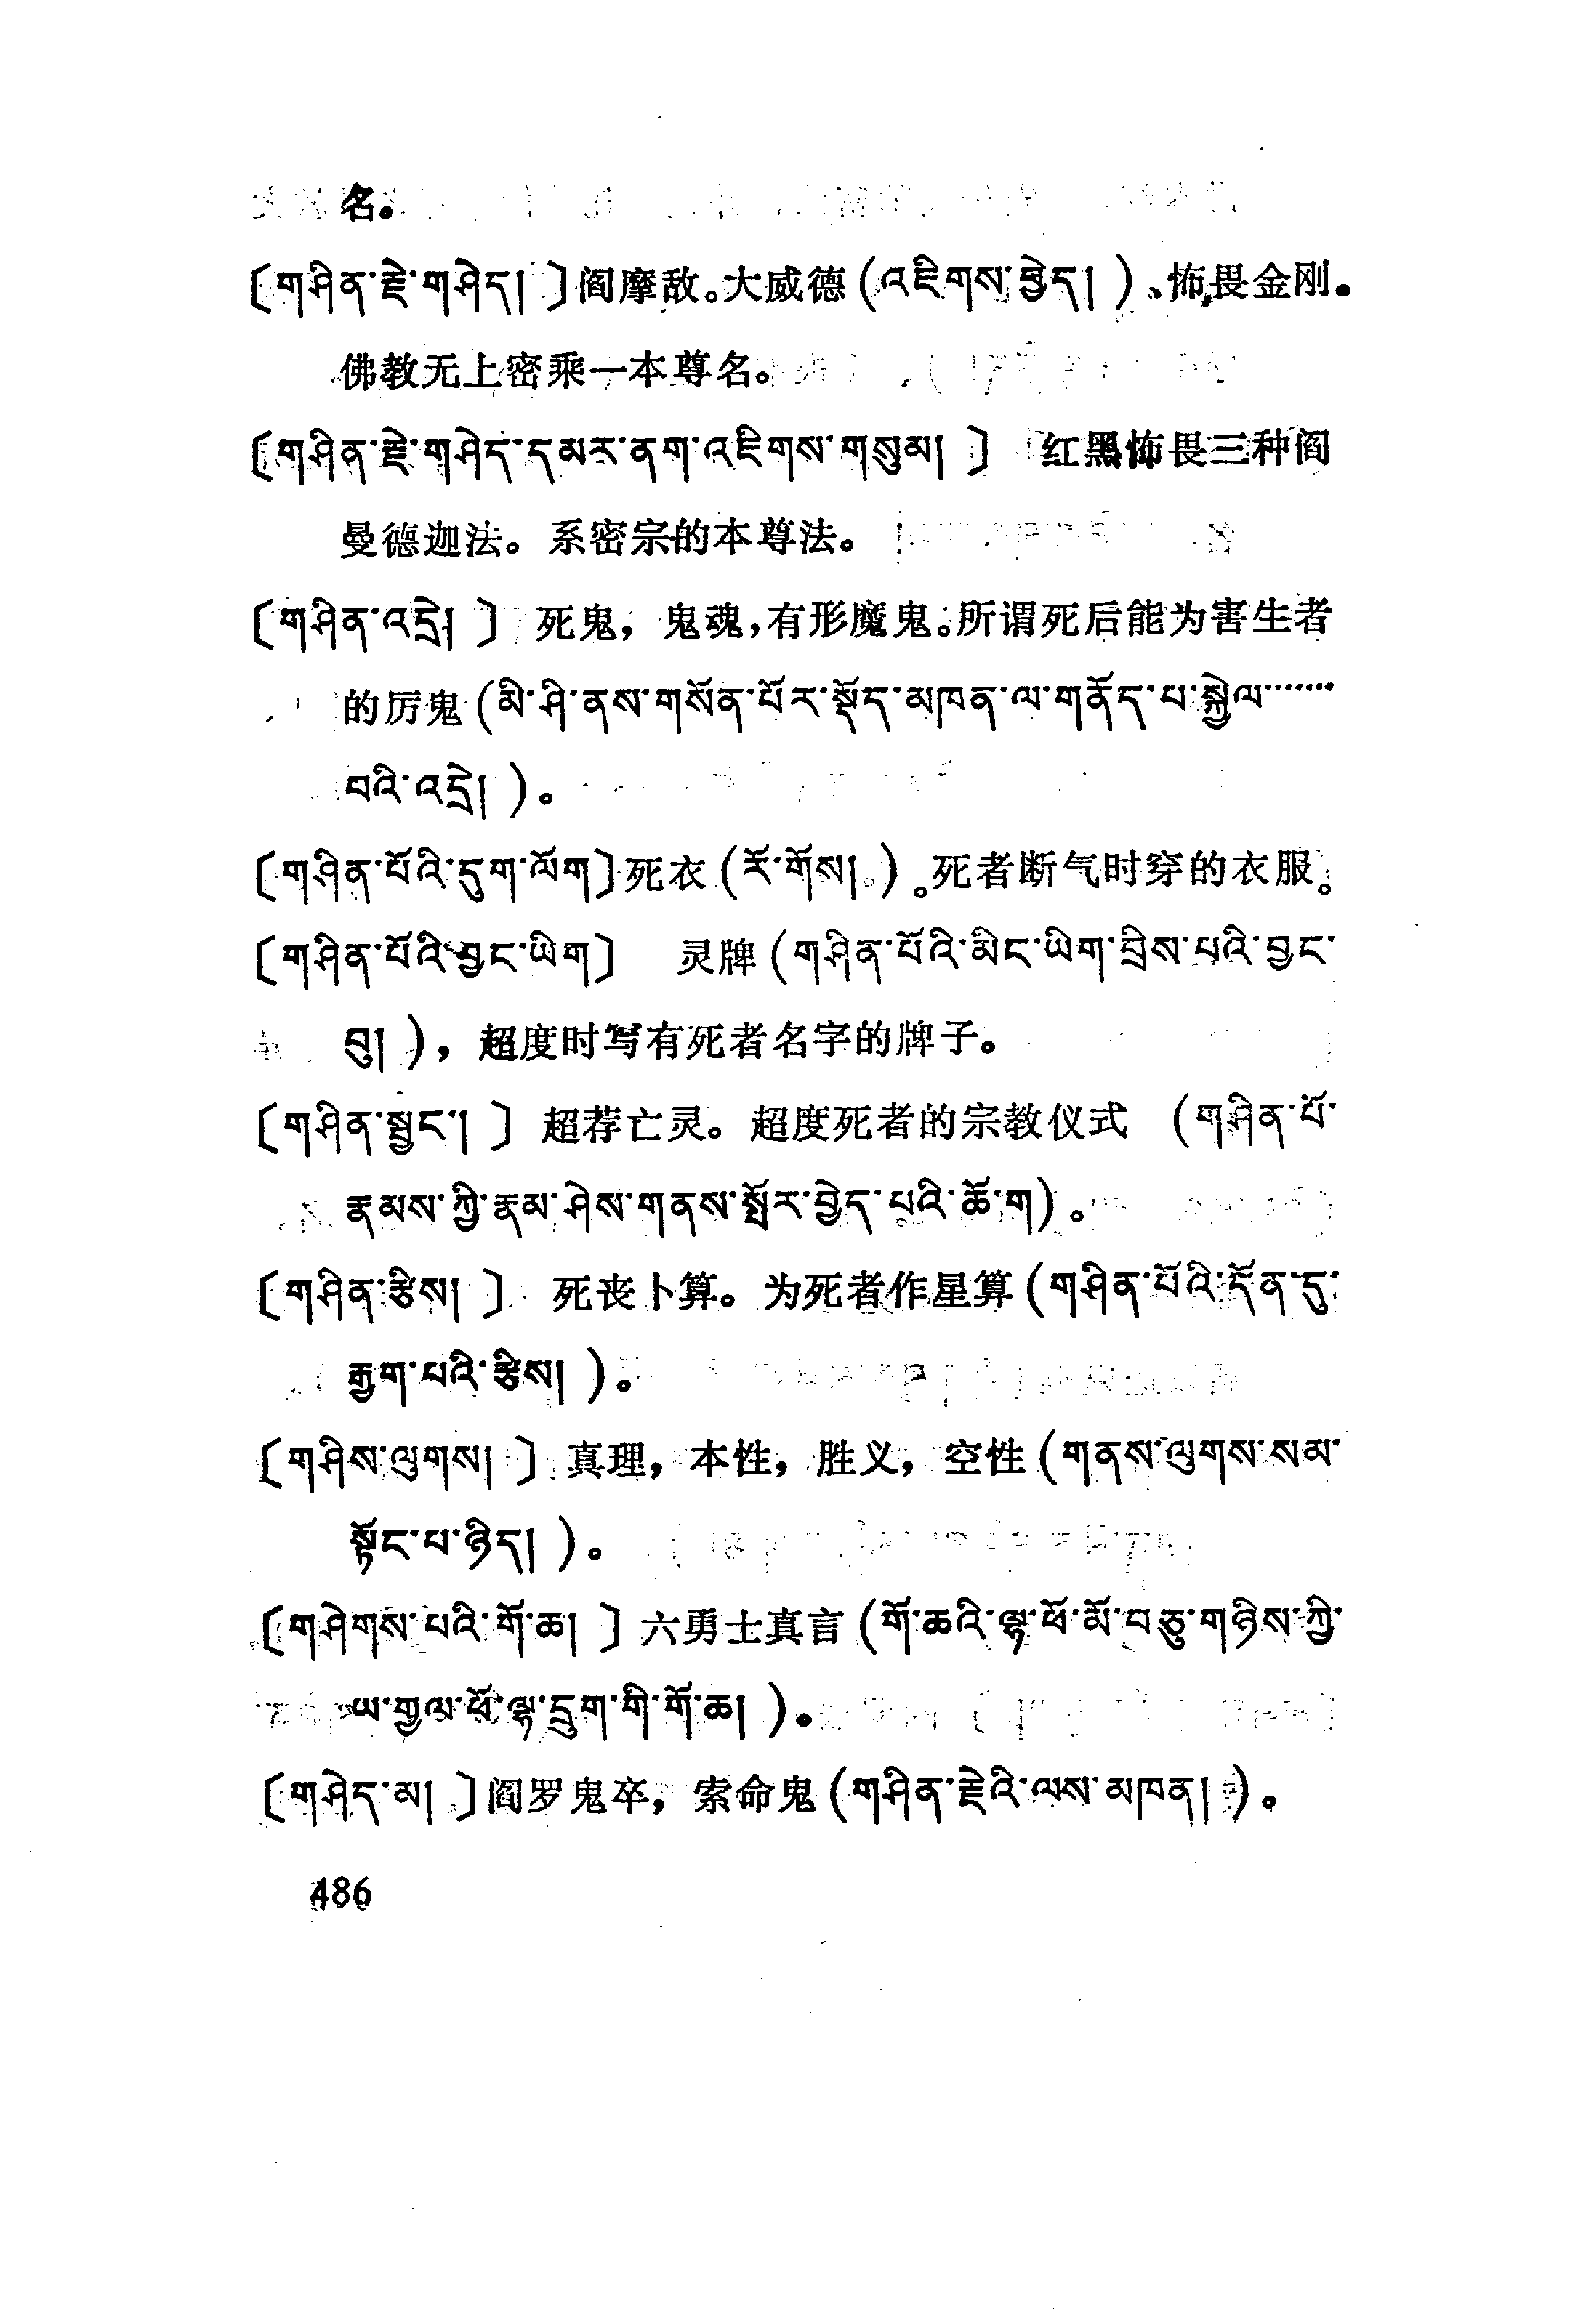 名。
〔གཤིན་རྗེ་གཤེད། 〕阎摩敌。大威德(འཇིགས་བྱེད། )、怖畏金刚。
佛教无上密乘一本尊名。
〔གཤིན་རྗེ་གཤེད་དམར་ནག་འཇིགས་གསུམ། 〕 红黑怖畏三种阎
曼德迦法。系密宗的本尊法。
〔གཤིན་འདྲེ། 〕 死鬼，鬼魂，有形魔鬼。所谓死后能为害生者
的厉鬼(མི་ཤི་ནས་གསོན་པོར་སྡོད་མཁན་ལ་གནོད་པ་སྐྱེལ་……
བའི་འདྲེ། )。
〔གཤིན་པོའི་དུག་ལོག〕死衣(རོ་གོས། )。死者断气时穿的衣服。
〔གཤིན་པོའི་བྱང་ཡིག〕 灵牌(གཤིན་པོའི་མིང་ཡིག་བྲིས་པའི་བྱང་
བུ། )，超度时写有死者名字的牌子。
〔གཤིན་སྦྱང་། 〕 超荐亡灵。超度死者的宗教仪式 (གཤིན་པོ་
རྣམས་ཀྱི་རྣམ་ཤེས་གནས་སྤོར་བྱེད་པའི་ཆོ་ག)。
〔གཤིན་རྩིས། 〕 死丧卜算。为死者作星算(གཤིན་པོའི་དོན་དུ་
རྒྱག་པའི་རྩིས། )。
〔གཤིས་ལུགས། 〕 真理，本性，胜义，空性(གནས་ལུགས་སམ་
སྟོང་པ་ཉིད། )。
〔གཤེགས་པའི་གོ་ཆ། 〕六勇士真言(གོ་ཆའི་ལྷ་ཕོ་མོ་བཅུ་གཉིས་ཀྱི་
ཡ་གྱལ་ཕོ་ལྷ་དྲུག་གི་གོ་ཆ། )。
〔གཤེད་མ། 〕阎罗鬼卒，索命鬼(གཤིན་རྗེའི་ལས་མཁན། )。
486